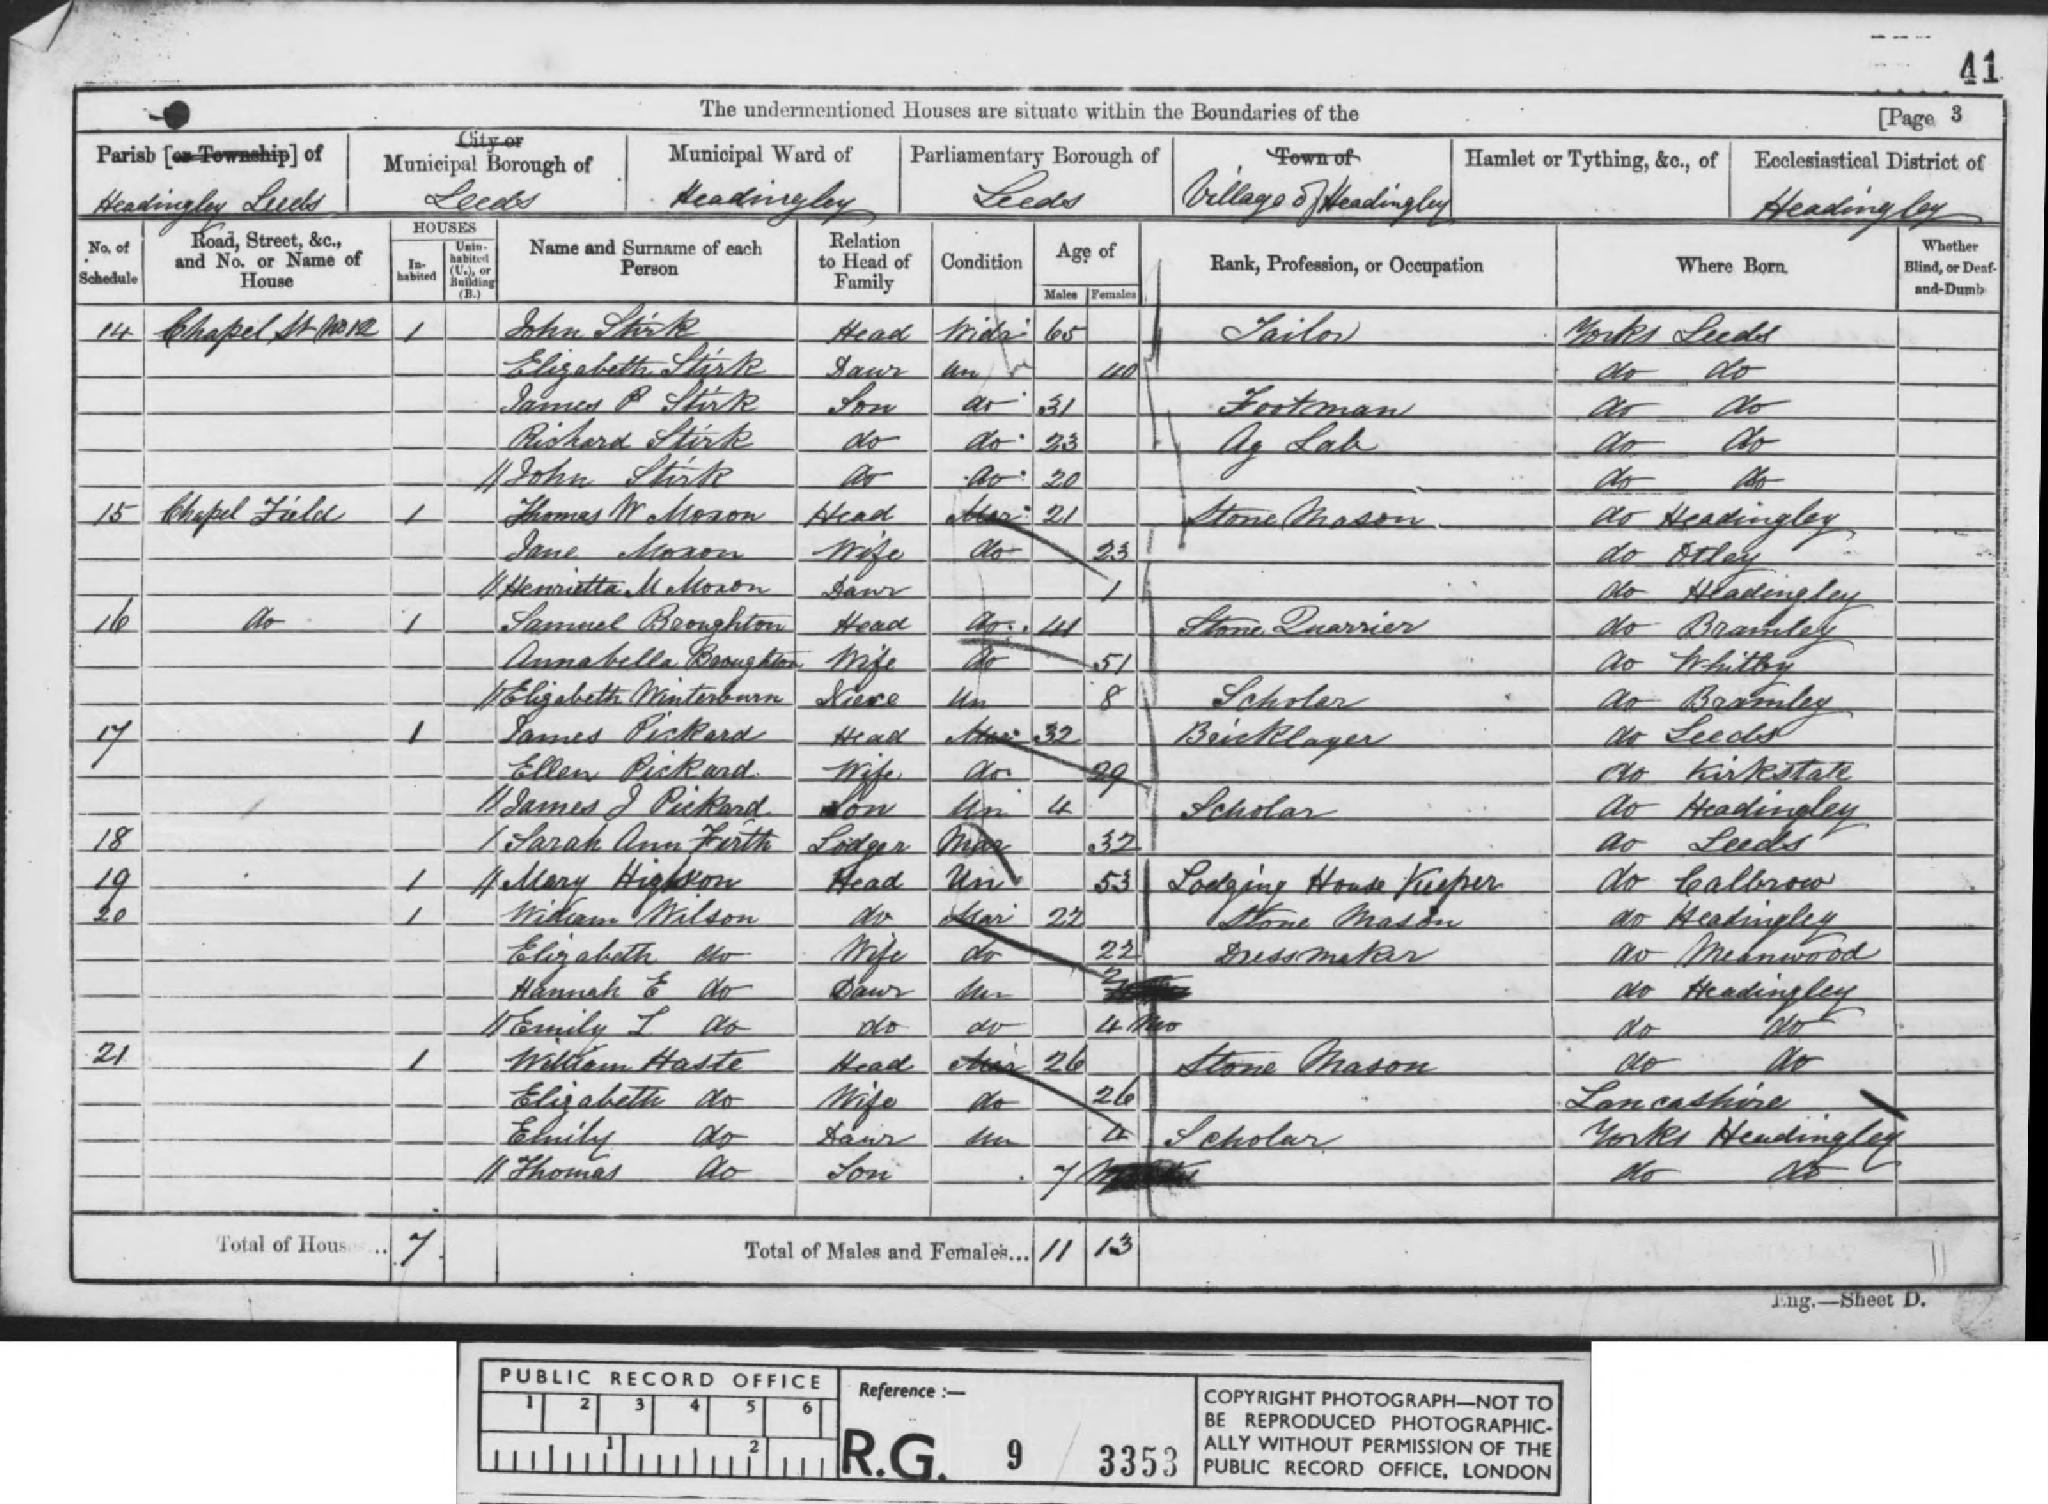 41
The undermentioned Houses are situate within the Boundaries of the [Page 3
Parish [or Township] of City or Municipal Borough of Municipal Ward of Parliamentary Borough of Town of Hamlet or Tything, &c., of Ecclesiastical District of
Headingley Leeds Leeds Headingley Leeds Village of Headingley Headingley
No. of Schedule Road, Street, &c., and No. or Name of House HOUSES In-habited Unin-habited (U.), or Building (B.) Name and Surname of each Person Relation to Head of Family Condition Age of Males Females Rank, Profession, or Occupation Where Born Whether Blind, or Deaf-and-Dumb
14 Chapel St No 12 1 John Stirk Head Widr 65 Tailor Yorks Leeds
Elizabeth Stirk Dawr Un 40 do do
James P Stirk Son do 31 Footman do do
Richard Stirk do do 23 Ag Lab do do
John Stirk do do 20 do do
15 Chapel Field 1 Thomas W Moxon Head Mar 21 Stone Mason do Headingley
Jane Moxon Wife do 23 do Otley
Henrietta M Moxon Dawr 1 do Headingley
16 do 1 Samuel Broughton Head do 41 Stone Quarrier do Bramley
Annabella Broughton Wife do 51 do Whitby
Elizabeth Winterburn Niece Un 8 Scholar do Bramley
17 1 James Pickard Head Mar 32 Bricklayer do Leeds
Ellen Pickard Wife do 29 do Kirkstate
James J Pickard Son Un 4 Scholar do Headingley
18 Sarah Ann Firth Lodger Mar 32 do Leeds
19 1 Mary Head Un 53 Lodging House Keeper do Calbrow
20 1 William Wilson do Mar 22 Stone Mason do Headingley
Elizabeth do Wife do 22 Dressmaker do Meanwood
Hannah E do Dawr Un 2 do Headingley
Emily L do do do 4 Mo do do
21 1 William Haste Head Mar 26 Stone Mason do do
Elizabeth do Wife do 26 Lancashire
Emily do Dawr Un 4 Scholar Yorks Headingley
Thomas do Son 7 do do
Total of Houses... 7 Total of Males and Females... 11 13
Eng.—Sheet D.
PUBLIC RECORD OFFICE
1 2 3 4 5 6
1 2
Reference :—
R.G. 9 / 3353
COPYRIGHT PHOTOGRAPH—NOT TO
BE REPRODUCED PHOTOGRAPHIC-
ALLY WITHOUT PERMISSION OF THE
PUBLIC RECORD OFFICE, LONDON